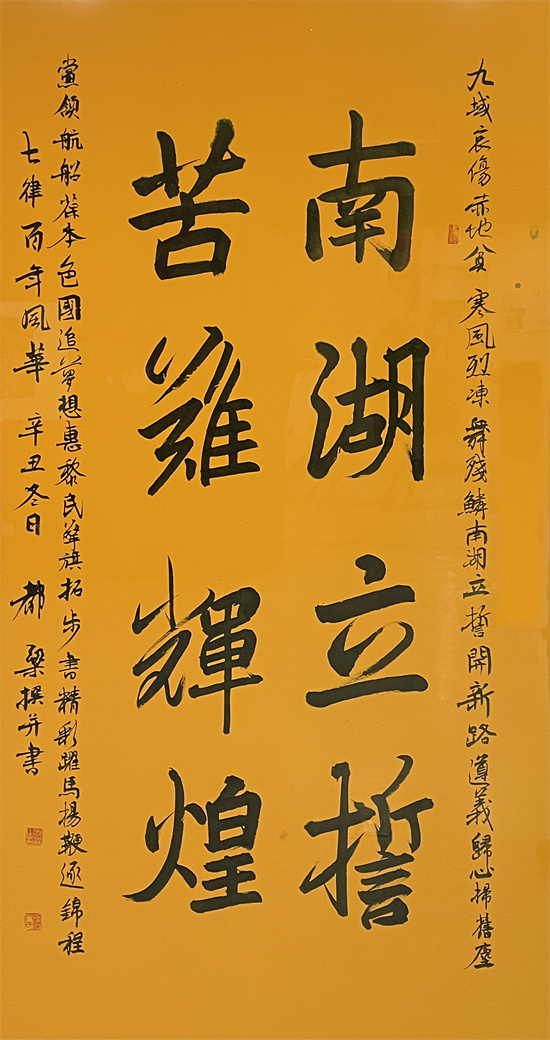 九域哀傷赤地貧 寒風烈凍舞殘鱗南湖立誓開新路遵義歸心掃舊塵
南湖立誓
苦難輝煌
黨領航船葆本色國追夢想惠黎民舉旗拓步書精彩躍馬揚鞭逐錦程
七律百年風華 辛丑冬日 都梁撰并書